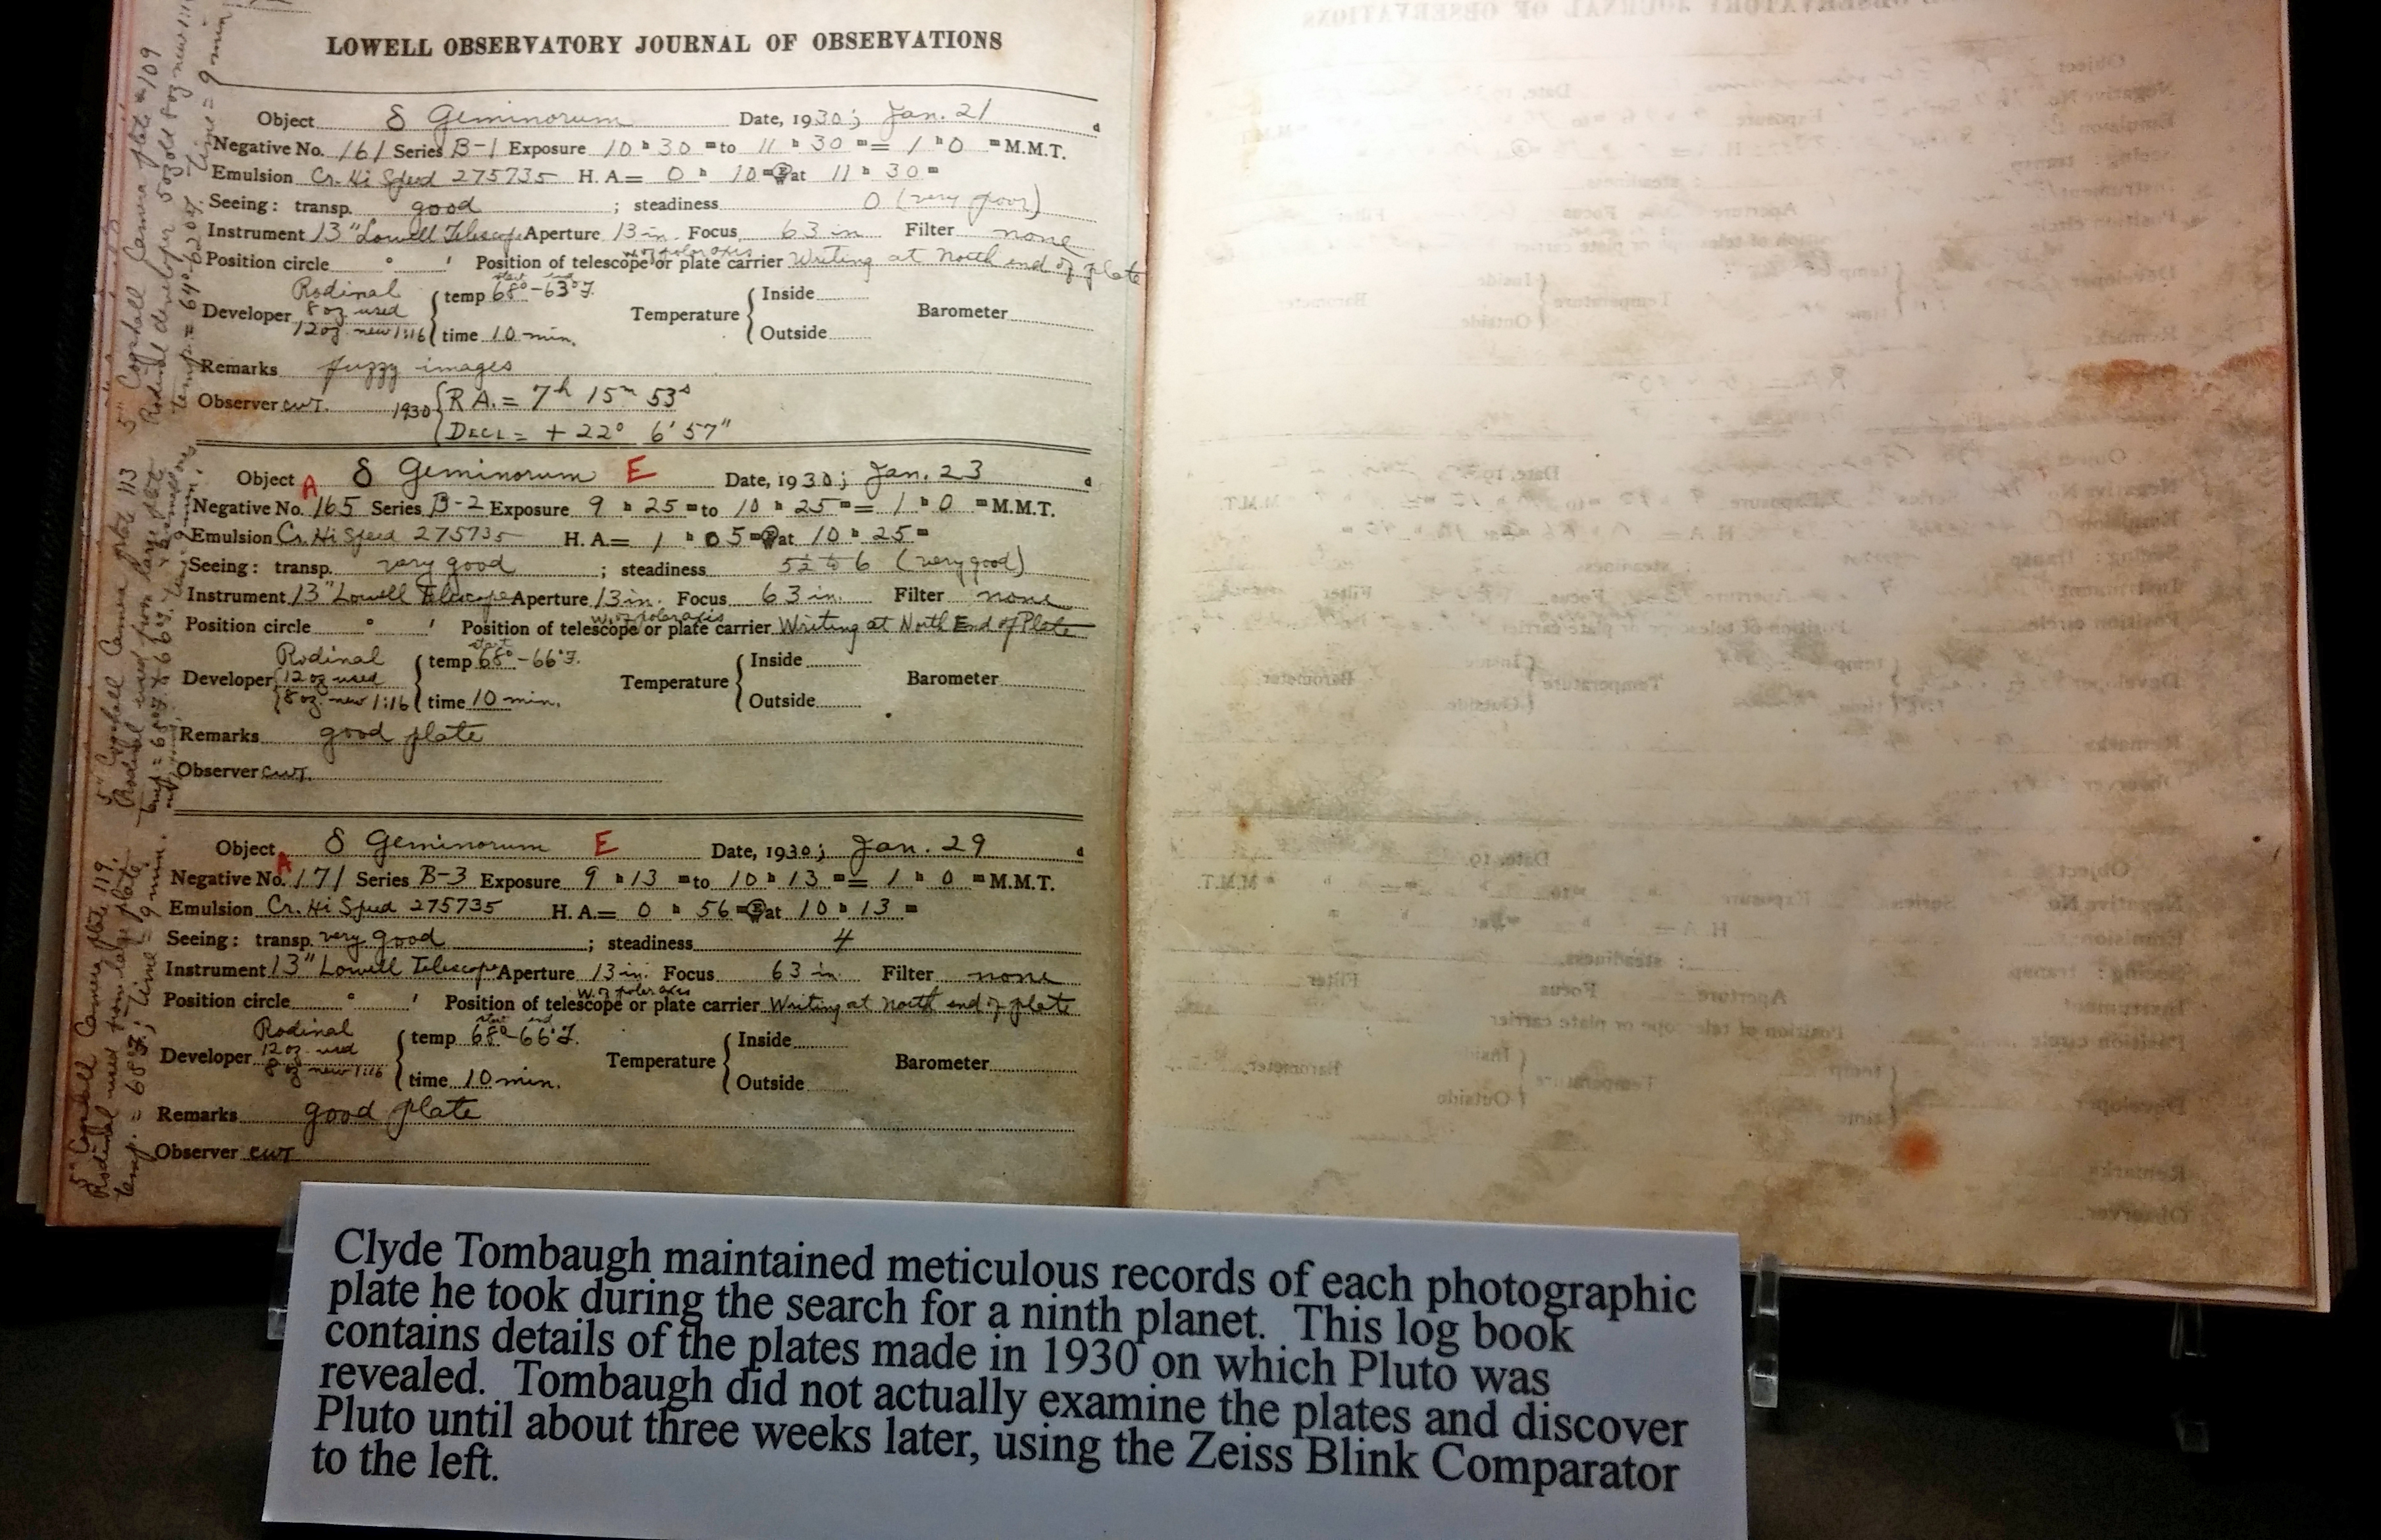 LOWELL OBSERVATORY JOURNAL OF OBSERVATIONS
Object δ Geminorum Date, 1930; Jan. 21 d
Negative No. 161 Series B-1 Exposure 10 h 30 m to 11 h 30 m = 1 h 0 m M.M.T.
Emulsion Cr. Hi Speed 275735 H. A = 0 h 10 m E at 11 h 30 m
Seeing: transp. good ; steadiness 0 (very poor)
Instrument 13" Lowell Telescope Aperture 13 in. Focus 63 in Filter none
W. of polar axis
Position circle ° ' Position of telescope or plate carrier Writing at North end of plate
Developer Rodinal 8 oz used 12 oz new 1:16 temp start 68° - end 63° F. time 10 min. Temperature Inside Outside Barometer
Remarks fuzzy images
Observer CWT. 1930 R A. = 7h 15m 53s
Decl = + 22° 6' 57"
Object δ Geminorum E Date, 1930; Jan. 23 d
A
Negative No. 165 Series B-2 Exposure 9 h 25 m to 10 h 25 m = 1 h 0 m M.M.T.
Emulsion Cr. Hi Speed 275735 H. A = 1 h 05 m at 10 h 25 m
Seeing: transp. very good ; steadiness 5½ to 6 (very good)
Instrument 13" Lowell Telescope Aperture 13 in. Focus 63 in. Filter none
W. of polar axis
Position circle ° ' Position of telescope or plate carrier Writing at North End of Plate
Developer Rodinal 12 oz used 8 oz new 1:16 temp start 68° - 66° F. time 10 min. Temperature Inside Outside Barometer
Remarks good plate
Observer CWT.
Object δ Geminorum E Date, 1930; Jan. 29 d
A
Negative No. 171 Series B-3 Exposure 9 h 13 m to 10 h 13 m = 1 h 0 m M.M.T.
Emulsion Cr. Hi Speed 275735 H. A = 0 h 56 m E at 10 h 13 m
Seeing: transp. very good ; steadiness 4
Instrument 13" Lowell Telescope Aperture 13 in. Focus 63 in Filter none
W. of polar axis
Position circle ° ' Position of telescope or plate carrier Writing at North end of plate
Developer Rodinal 12 oz used 8 oz new 1:16 temp start 68° - end 66° F. time 10 min. Temperature Inside Outside Barometer
Remarks good plate
Observer CWT
5" Cogshall Camera plate 109
Rodinal developer 5 oz old 8 oz new
temp. = 64° time = 9 min
5" Cogshall Camera plate 113
Rodinal used from large plate
5" Cogshall Camera plate 119.
Rodinal used from large plate
temp. = 68° F; time = 9 min.
Clyde Tombaugh maintained meticulous records of each photographic
plate he took during the search for a ninth planet. This log book
contains details of the plates made in 1930 on which Pluto was
revealed. Tombaugh did not actually examine the plates and discover
Pluto until about three weeks later, using the Zeiss Blink Comparator
to the left.